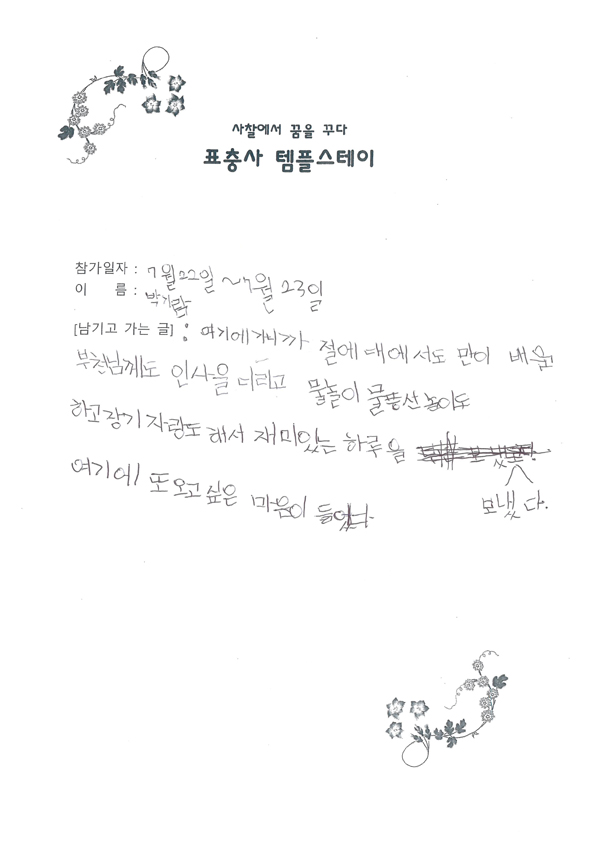 사찰에서 꿈을 꾸다
표충사 템플스테이
참가일자 : 7월22일 ~7월 23일
이 름 : 박기람
[남기고 가는 글] : 여기에 가니까 절에 대에서도 만이 배움
부천님께도 인사를 더리고 물놀이 물풍선 놀이도
하고 장기 자랑도 해서 재미있는 하루을
보냈다.
여기에 또 오고 싶은 마음이 들었다